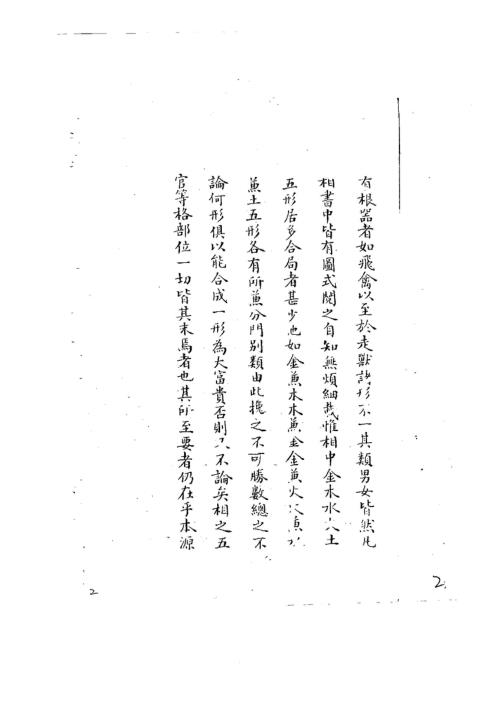 有根器者如飛禽以至於走獸諸形不一其類男女皆然凡
相書中皆有圖式閱之自知無煩細哉惟相中金木水火土
五形居多合局者甚少也如金兼木木兼金金兼火火兼水
兼土五形各有所兼分門別類由此攙之不可勝數總之不
論何形俱以能合成一形為大富貴否則 不論矣相之五
官等格部位一切皆其末焉者也其所至要者仍在乎本源
2
2